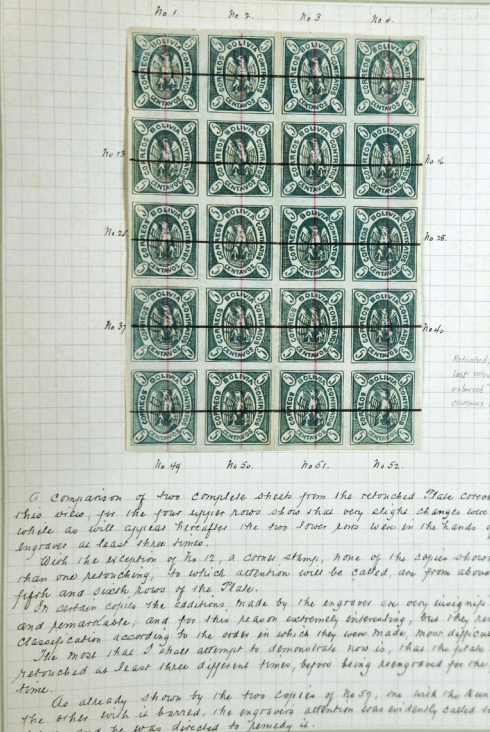 No 1. No 2. No 3 No 4.
BOLIVIA CORREOS CONTRATOS 5 CENTAVOS
No 13 No 16
No 25 No 28.
No 37 No 40
Retouched,
last
No 49 No 50. No 51. No 52.
A comparison of two complete sheets from the retouched Plate
this view, for the four upper rows show that very slight changes were
while as will appear hereafter the two lower rows were in the hands of
engraver at least three times.
With the exception of No 12, a corner stamp, none of the copies shows
than one retouching, to which attention will be called, are from above
fifth and sixth rows of the Plate.
In certain copies the additions, made by the engraver are very
and remarkable, and for this reason extremely interesting, but they
classification according to the order in which they were made, most
The most that I shall attempt to demonstrate now is, that the plate
retouched at least three different times, before being reengraved for the
time.
As already shown by the two copies of No 57, one with the
the other with is barred, the engravers attention was evidently called to
and he was directed to remedy it.